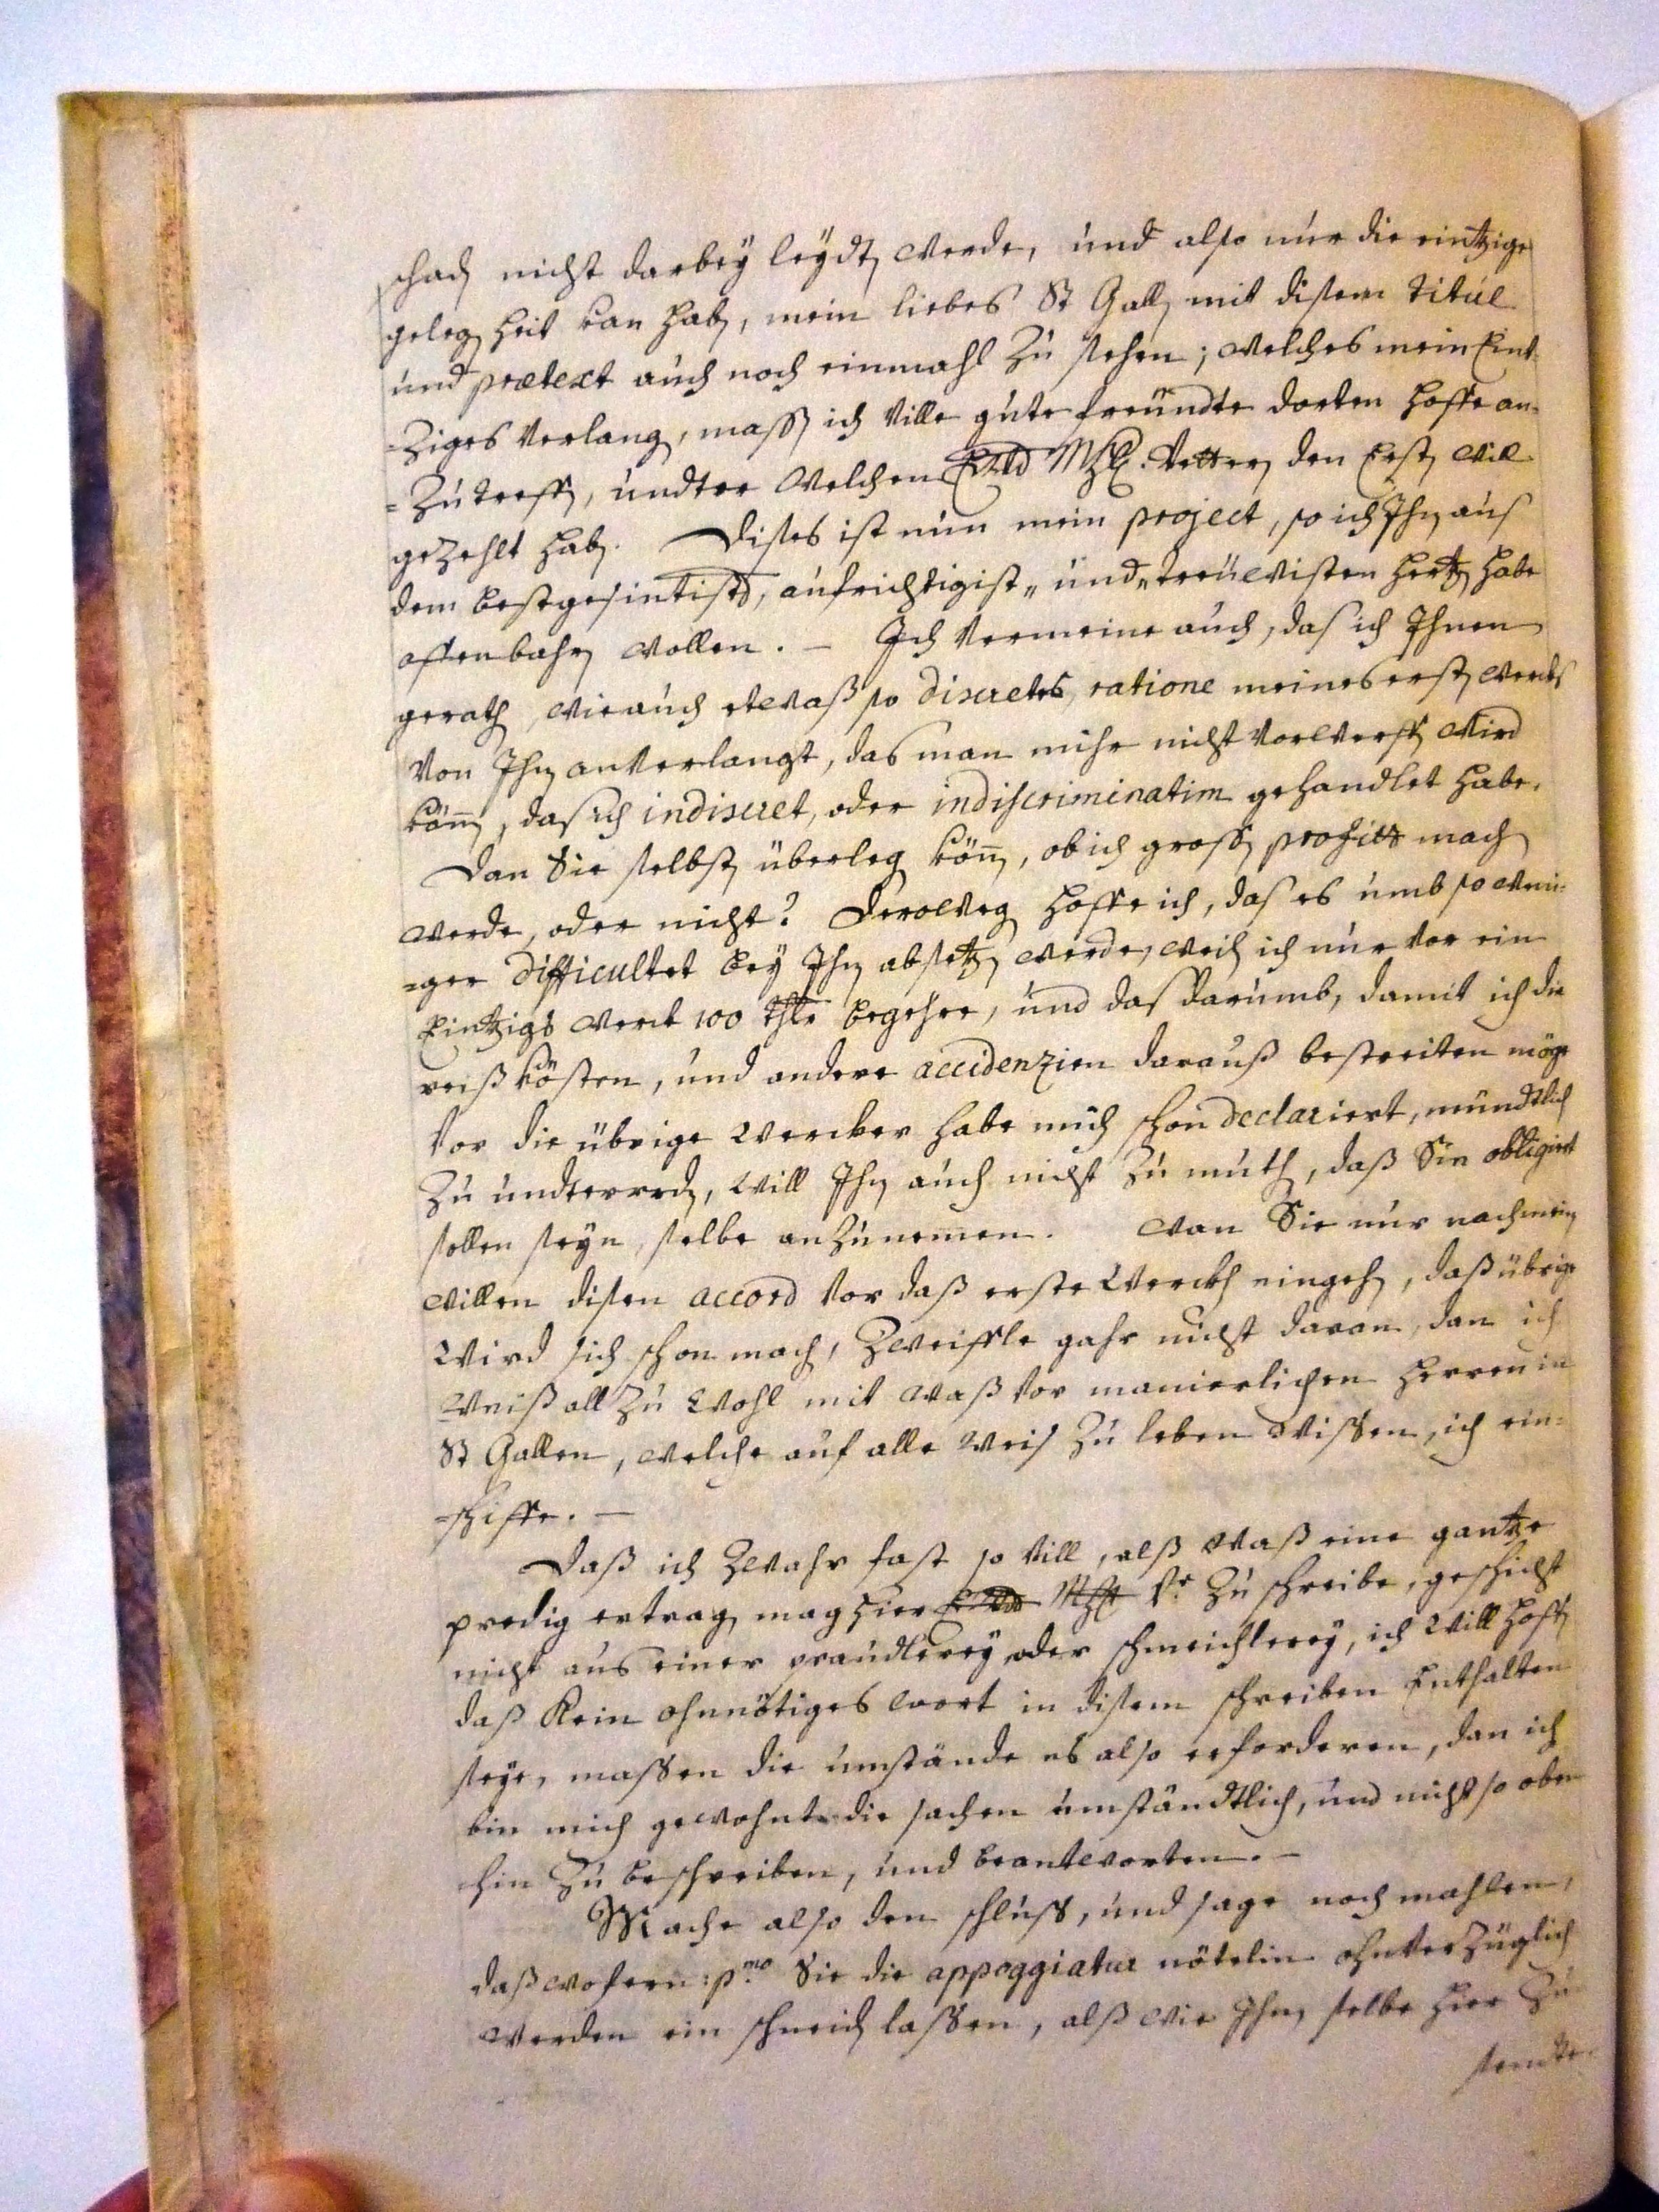 schaden nicht darbey leydten werde, und also nur die eintzige
gelegenheit kan haben, mein liebes St Gallen mit disem titul
und prætext auch noch einmahl zu sehen; welches mein Eint-
=ziges verlangen, massen ich ville gute freündte dorten hoffe an-
=zutreffen, undter welchen MhH. Vettern den Ersten will
gezehlt haben. Dises ist nun mein project, so ich Ihnen aus
dem bestgesintisten, aufrichtigist„ und„ treüwisten hertzen habe
offenbahren wollen. – Ich vermeine auch, das ich Ihnen
gerathen, wie auch etwaß so discretes, ratione meines ersten wercks
von Ihnen anverlangt, das man mihr nicht vorwerffen wird
können, das ich indiscret, oder indiscriminatim gehandlet habe.
Dan Sie selbsten überlegen können, ob ich grossen profitt machen
werde, oder nicht? Derowegen hoffe ich, das es umb so weni=
=ger difficultet bey Ihnen absetzen werde, weilen ich nur vor ein
Eintzigs werck 100 thlr begehre, und das darumb, damit ich die
reißkösten, und andere accidenzien darauß bestreiten möge
vor die übrige wercker habe mich schon declariert, mündtlich
zu undterreden, will Ihnen auch nicht zu muthen, daß Sie obligirt
sollen seyn, selbe anzunemen. wan Sie nur nach meinen
willen disen accord vor daß erste werckh eingehen, daß übrige
wird sich schon machen, zweiffle gahr nicht daran, dan ich
weiß all zu wohl mit waß vor manierlichen herren in
St Gallen, welche auf alle weis zu leben wissen, ich ein=
=schiffe. –
Daß ich zwahr fast so vill, alß waß eine gantze
predig ertragen mag hier MhH Vr zu schreibe, geschicht
nicht aus einer praudlerey oder schmeichlerey, ich will hoffen
daß kein ohnnötiges wort in disem schreiben Enthalten
seye, massen die umstände es also erforderen, dan ich
bin mich gewohnt die sachen umständtlich, und nicht so oben
hin zu beschreiben, und beantworten. –
Mache also den schluss, und sage noch mahlen,
daß wofern: pmo Sie die appoggiatur nötelin ohnverzüglich
werden ein schneiden lassen, alß wie Ihnen selbe hier zu
sendte.